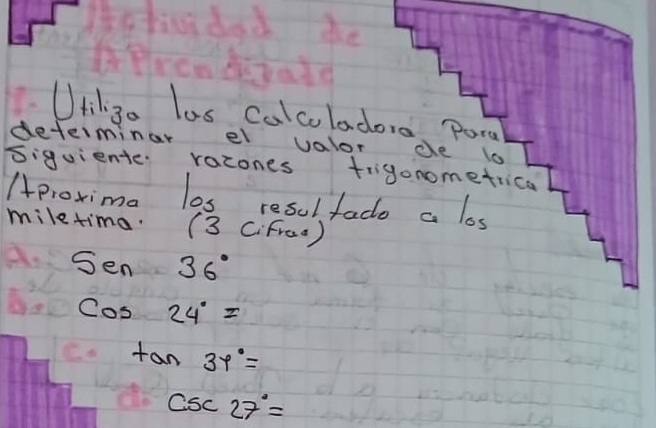 Actividad de
Aprendizaje
1. Utiliza las Calculadora Para
determinar el valor de la
Siguiente. razones trigonometrica
Aproxima los resultado a los
miletima. (3 Cifras)
a. Sen 36°
b. Cos 24° =
c. tan 39°=
d. Csc 27°=